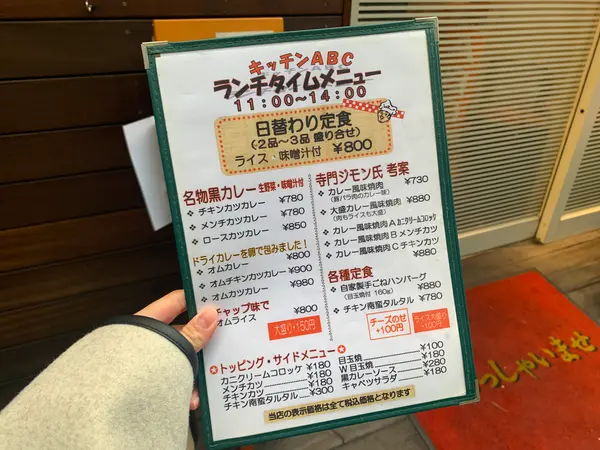 キッチンABC
ランチタイムメニュー
11:00〜14:00
日替わり定食
(2品〜3品 盛り合せ)
ライス・味噌汁付 ¥800
名物黒カレー 生野菜・味噌汁付
チキンカツカレー ¥780
メンチカツカレー ¥780
ロースカツカレー ¥850
ドライカレーを卵で包みました!
オムカレー ¥800
オムチキンカツカレー ¥900
オムカツカレー ¥980
チャップ味で
オムライス ¥800
大盛り+150円
寺門ジモン氏 考案
カレー風味焼肉 ¥730
(豚バラ肉のカレー味)
大盛カレー風味焼肉 ¥880
(肉もライスも大盛)
カレー風味焼肉A カニクリームコロッケ
カレー風味焼肉B メンチカツ
カレー風味焼肉C チキンカツ
各種定食
自家製手ごねハンバーグ ¥880
(目玉焼付 160g)
チキン南蛮タルタル ¥780
チーズのせ
+100円
ライス大盛り
+100円
トッピング・サイドメニュー
カニクリームコロッケ ¥180
メンチカツ ¥180
チキンカツ ¥180
チキン南蛮タルタル ¥300
目玉焼 ¥100
W目玉焼 ¥180
黒カレーソース ¥280
キャベツサラダ ¥180
当店の表示価格は全て税込価格となります
っしゃいませ